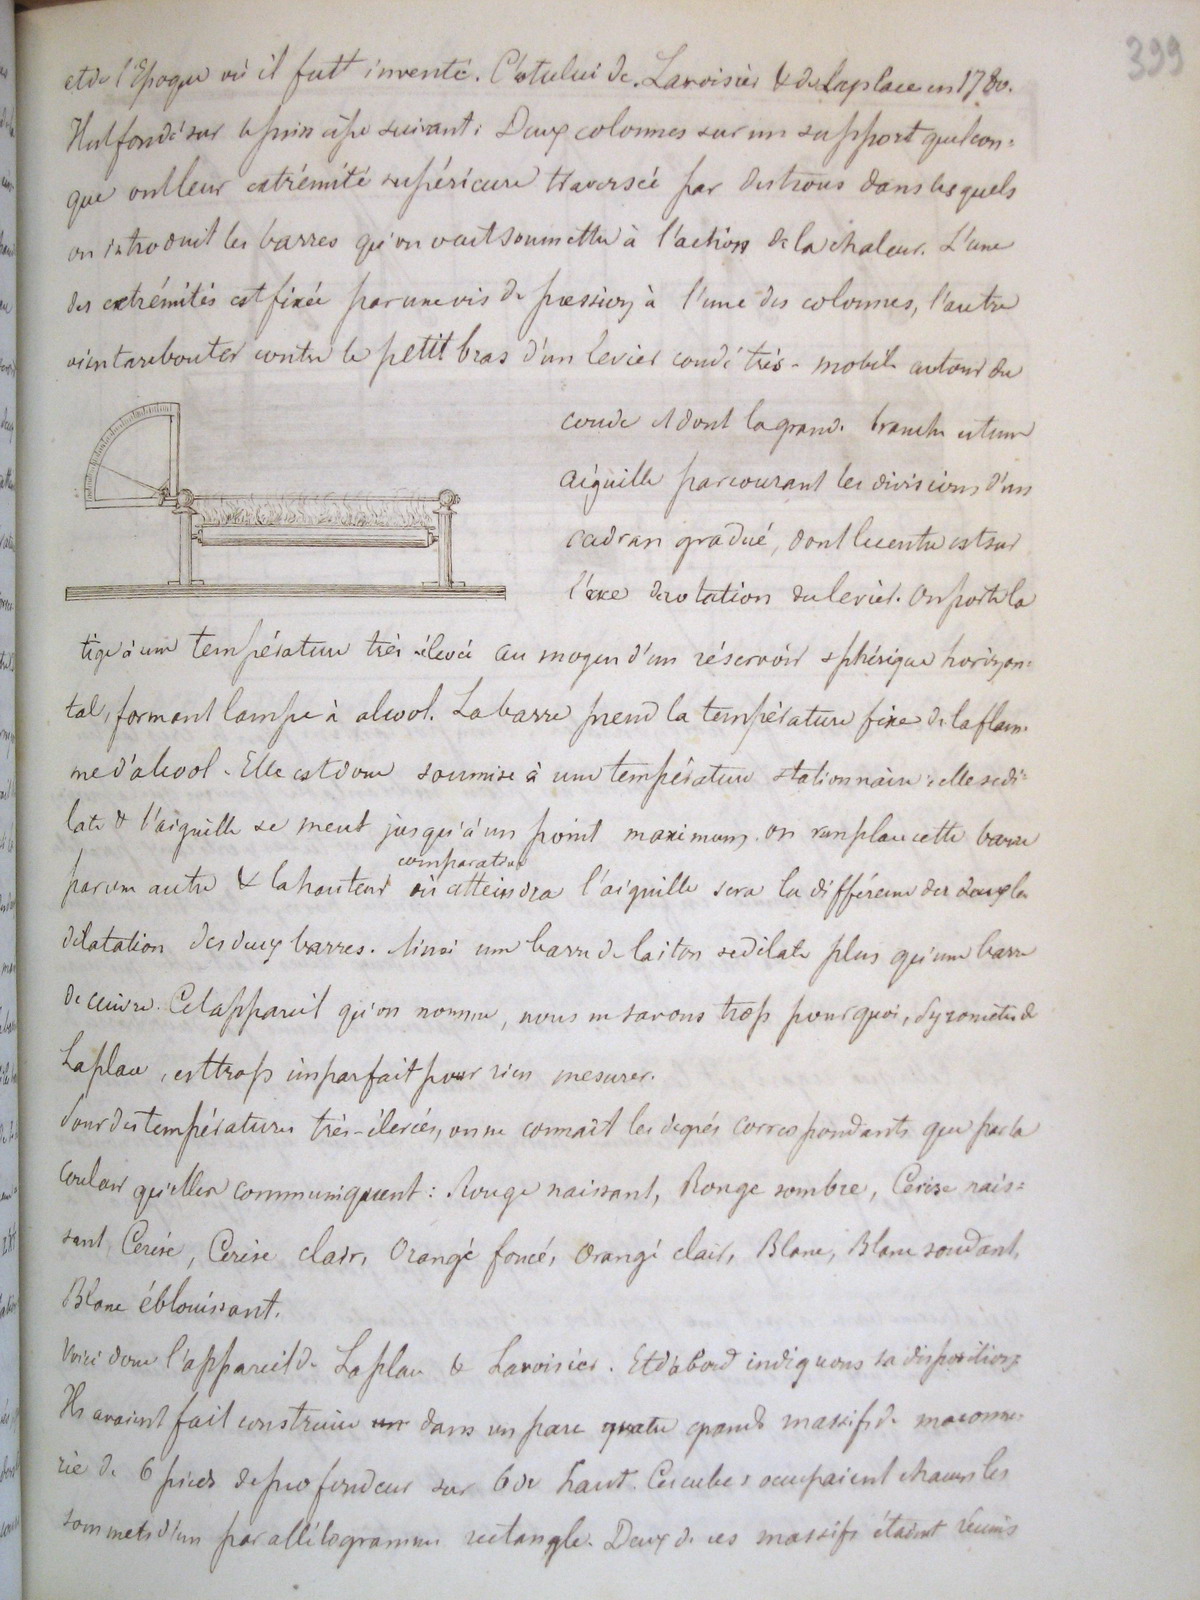 399
et de l'Epoque où il futt inventé. C'est celui de Lavoisier & de Laplace en 1780.
Il est fondé sur le principe suivant: Deux colonnes sur un support quelcon=
que ont leur extrémité supérieure traversée par des trous dans lesquels
on introduit les barres qu'on veut soumettre à l'action de la chaleur. L'une
des extrémités est fixée par une vis de pression à l'une des colonnes, l'autre
vient arebouter contre le petit bras d'un levier coudé très-mobile autour du
coude et dont la grande branche est une
aiguille parcourant les divisions d'un
cadran gradué, dont le centre est sur
l'axe de rotation du levier. On porte la
tige à une température très-élevée au moyen d'un réservoir sphérique horizon=
tal, formant lampe à alcool. La barre prend la température fixe de la flam-
me d'alcool. Elle est donc soumise à une température stationnaire: elle se di=
late & l'aiguille se meut jusqu'à un point maximum. on remplace cette barre
comparative
par une autre & la hauteur où atteindra l'aiguille sera la différence des deux la
dilatation des deux barres. Ainsi une barre de laiton se dilate plus qu'une barre
de cuivre. Cet appareil qu'on nomme, nous ne savons trop pourquoi, Pyromètre de
Laplace, est trop imparfait pour rien mesurer.
Pour des températures très-élevées, on ne connaît les degrés correspondants que par la
couleur qu'elles communiquent: Rouge naissant, Rouge sombre, Cerise nais=
sant, Cerise, Cerise clair, Orangé foncé, Orangé clair, Blanc, Blanc soudant,
Blanc éblouissant.
Voici donc l'appareil de Laplace & Lavoisier. Et d'abord indiquons sa disposition:
Ils avaient fait construire dans un parc quatre grands massifs de maçonne-
rie de 6 pieds de profondeur sur 6 de haut. Ces cubes occupaient chacun les
sommets d'un parallélogramme rectangle. Deux de ces massifs étaient réunis